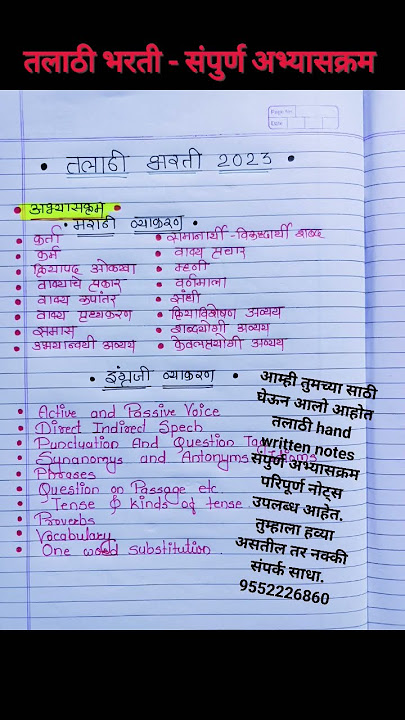 तलाठी भरती - संपुर्ण अभ्यासक्रम
Page No.
Date
• तलाठी भरती 2023 •
• अभ्यासक्रम •
• मराठी व्याकरण •
• कर्ता
• कर्म
• क्रियापद ओळखा
• वाक्याचे प्रकार
• वाक्य रूपांतर
• वाक्य पृथ्थकरण
• समास
• उभयान्वयी अव्यय
• समानार्थी - विरुध्दार्थी शब्द
• वाक्य प्रचार
• म्हणी
• वर्णमाला
• संधी
• क्रियाविशेषण अव्यय
• शब्दयोगी अव्यय
• केवलप्रयोगी अव्यय
• इंग्रजी व्याकरण •
• Active and Passive Voice
• Direct Indirect Spech
• Punctuation And Question Tag
• Synanomys and Antonyms
• Phrases
• Question on Passage etc
• Tense & kinds of tense
• Proverbs
• Vocabulary
• One world substitution.
आम्ही तुमच्या साठी
घेऊन आलो आहोत
तलाठी hand
written notes
संपुर्ण अभ्यासक्रम
परिपूर्ण नोट्स
उपलब्ध आहेत.
तुम्हाला हव्या
असतील तर नक्की
संपर्क साधा.
9552226860